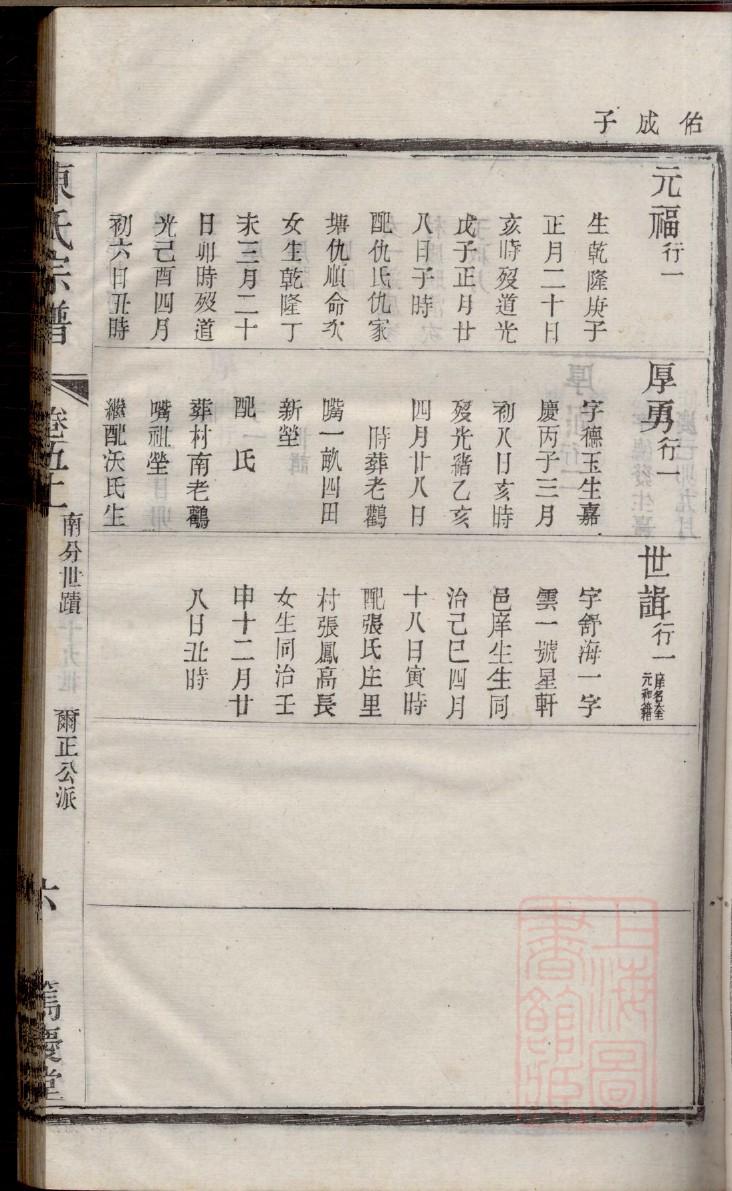 佑成子
元福行一
生乾隆庚子
正月二十日
亥時歿道光
戊子正月廿
八日子時
配仇氏仇家
塘仇順命次
女生乾隆丁
未三月二十
日卯時歿道
光己酉四月
初六日丑時
厚勇行一
字德玉生嘉
慶丙子三月
初八日亥時
歿光緒乙亥
四月廿八日
時葬老鸛
嘴一畝四田
新塋
配 氏
葬村南老鸛
嘴祖塋
繼配沃氏生
世諿行一
庠名奎
元和籍
字舒海一字
雲一號星軒
邑庠生生同
治己巳四月
十八日寅時
配張氏庄里
村張鳳高長
女生同治壬
申十二月廿
八日丑時
陳氏宗譜
卷五十
南分世蹟
爾正公派
六
篤慶堂
上海圖
書館藏